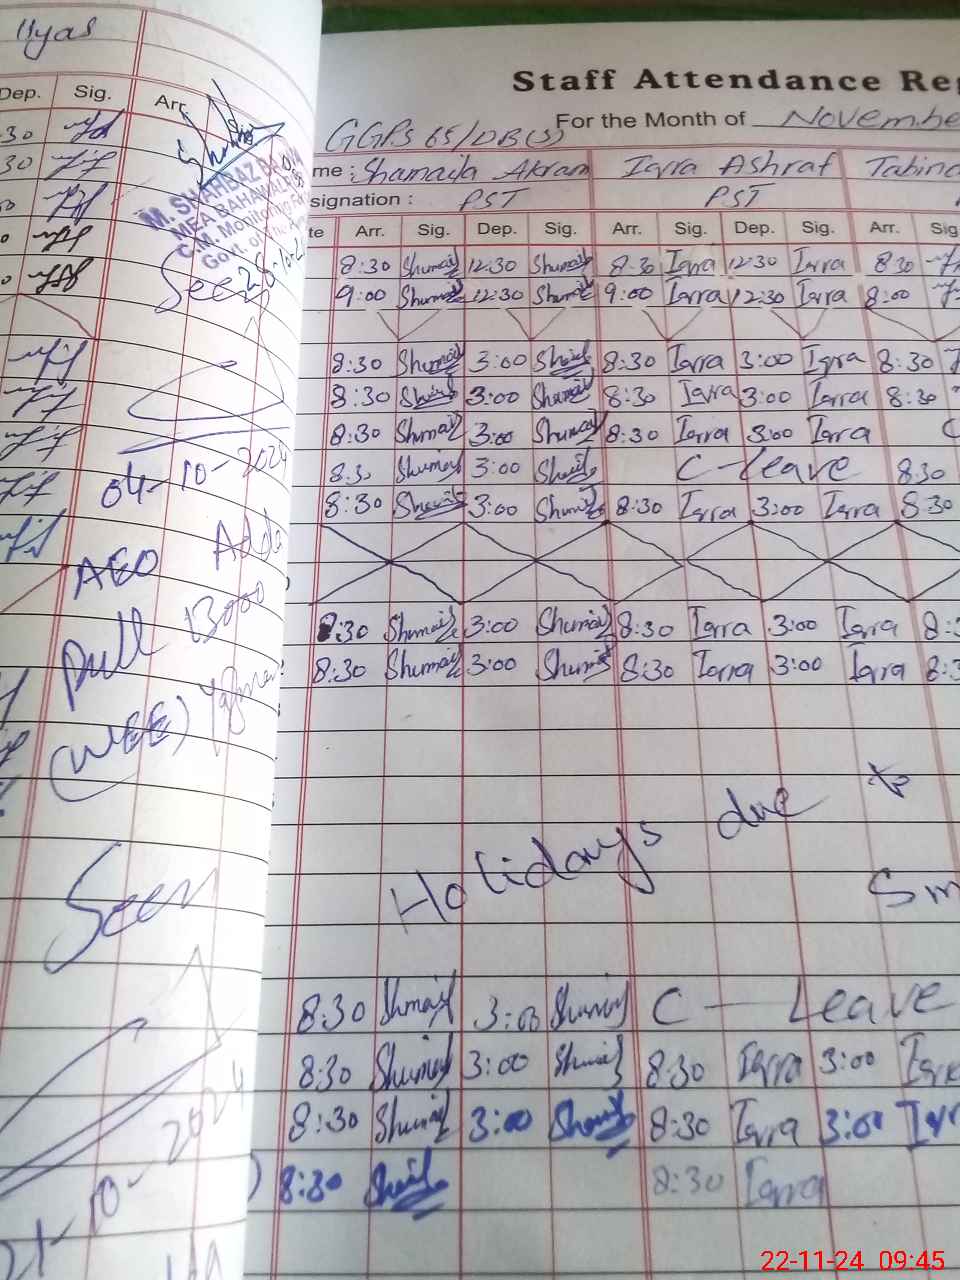 Ilyas
Dep. Sig. Arr.
M. SHAHBAZ
MEA BAHAWAL
C.M. Monitoring
Govt. of the
Seen
26-10-2
04-10-2024
AEO Adda
Pull 13000
(WEE)
Seen
21-10-2024
Staff Attendance Reg
For the Month of Novembe
GGPS 65/DB(S)
me : Shamaila Akram Iqra Ashraf Tabind
signation : PST PST
te Arr. Sig. Dep. Sig. Arr. Sig. Dep. Sig. Arr. Sig
8:30 Shumail 12:30 Shumail 8:30 Iqra 12:30 Iqra 8:30
9:00 Shumail 12:30 Shumail 9:00 Iqra 12:30 Iqra 8:00
8:30 Shumail 3:00 Shumail 8:30 Iqra 3:00 Iqra 8:30
8:30 Shumail 3:00 Shumail 8:30 Iqra 3:00 Iqra 8:30
8:30 Shumail 3:00 Shumail 8:30 Iqra 3:00 Iqra C
8:30 Shumail 3:00 Shumail C-Leave 8:30
8:30 Shumail 3:00 Shumail 8:30 Iqra 3:00 Iqra 8:30
8:30 Shumail 3:00 Shumail 8:30 Iqra 3:00 Iqra 8:
8:30 Shumail 3:00 Shumail 8:30 Iqra 3:00 Iqra 8:3
Holidays due to
Sm
8:30 Shumail 3:00 Shumail C-Leave
8:30 Shumail 3:00 Shumail 8:30 Iqra 3:00 Iqra
8:30 Shumail 3:00 Shumail 8:30 Iqra 3:00 Iqr
8:30 Shumail 8:30 Iqra
22-11-24 09:45